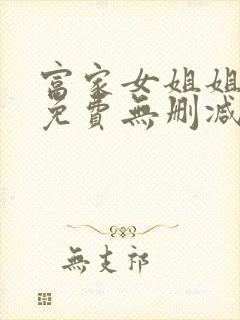 富家女姐姐
免費無刪减
無支祁